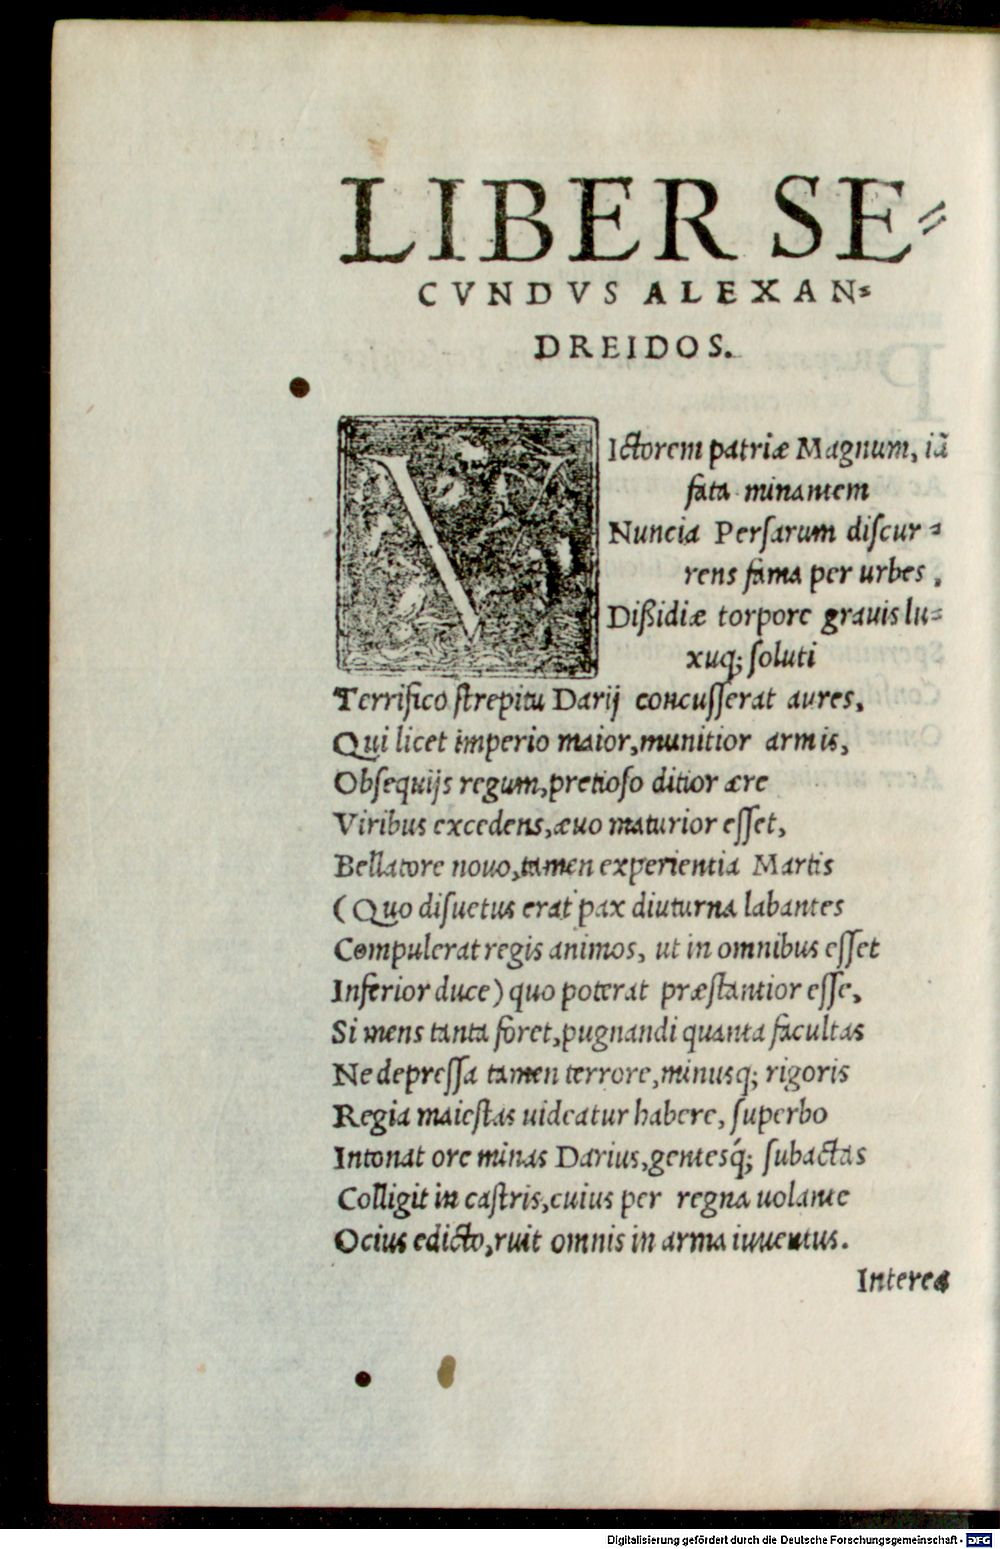 LIBER SE⸗
CVNDVS ALEXAN⸗
DREIDOS.
VIctorem patriæ Magnum, iã
fata minantem
Nuncia Persarum discur⸗
rens fama per urbes,
Dißidiæ torpore grauis lu⸗
xuq; soluti
Terrifico strepitu Darij concusserat aures,
Qui licet imperio maior, munitior armis,
Obsequijs regum, pretioso ditior ære
Viribus excedens, æuo maturior esset,
Bellatore nouo, tamen experientia Martis
(Quo disuetus erat pax diuturna labantes
Compulerat regis animos, ut in omnibus esset
Inferior duce) quo poterat præstantior esse,
Si mens tanta foret, pugnandi quanta facultas
Ne depressa tamen terrore, minusq; rigoris
Regia maiestas uideatur habere, superbo
Intonat ore minas Darius, gentesq́; subactas
Colligit in castris, cuius per regna uolante
Ocius edicto, ruit omnis in arma iuuentus.
Interea
Digitalisierung gefördert durch die Deutsche Forschungsgemeinschaft - DFG